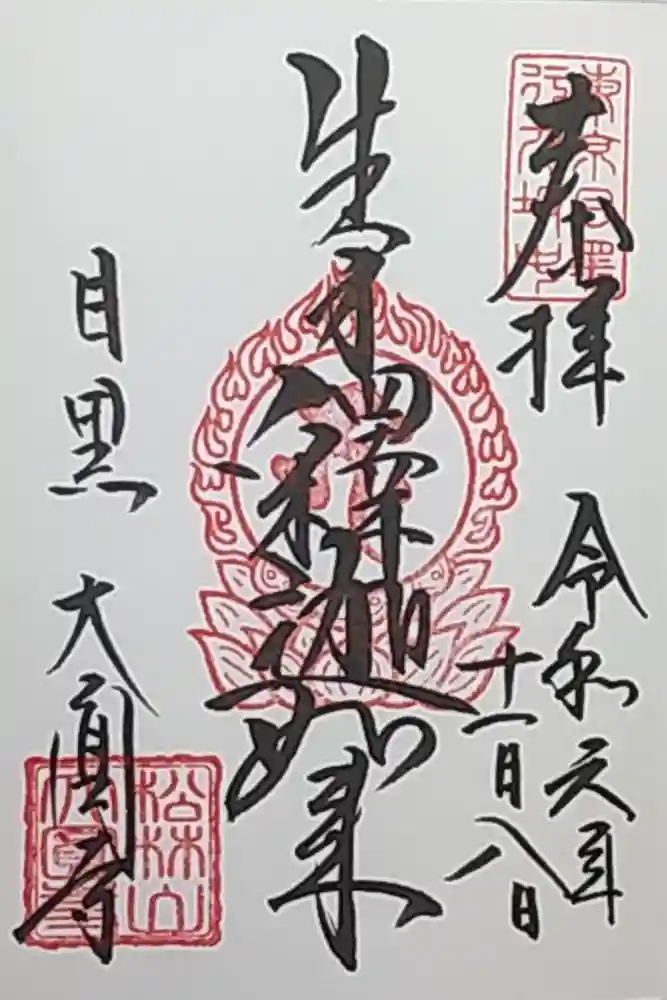 東京目黒
行人坂
奉拝
令和元年
十一月八日
生身釋迦如来
目黒 大圓寺
松林山
大圓寺